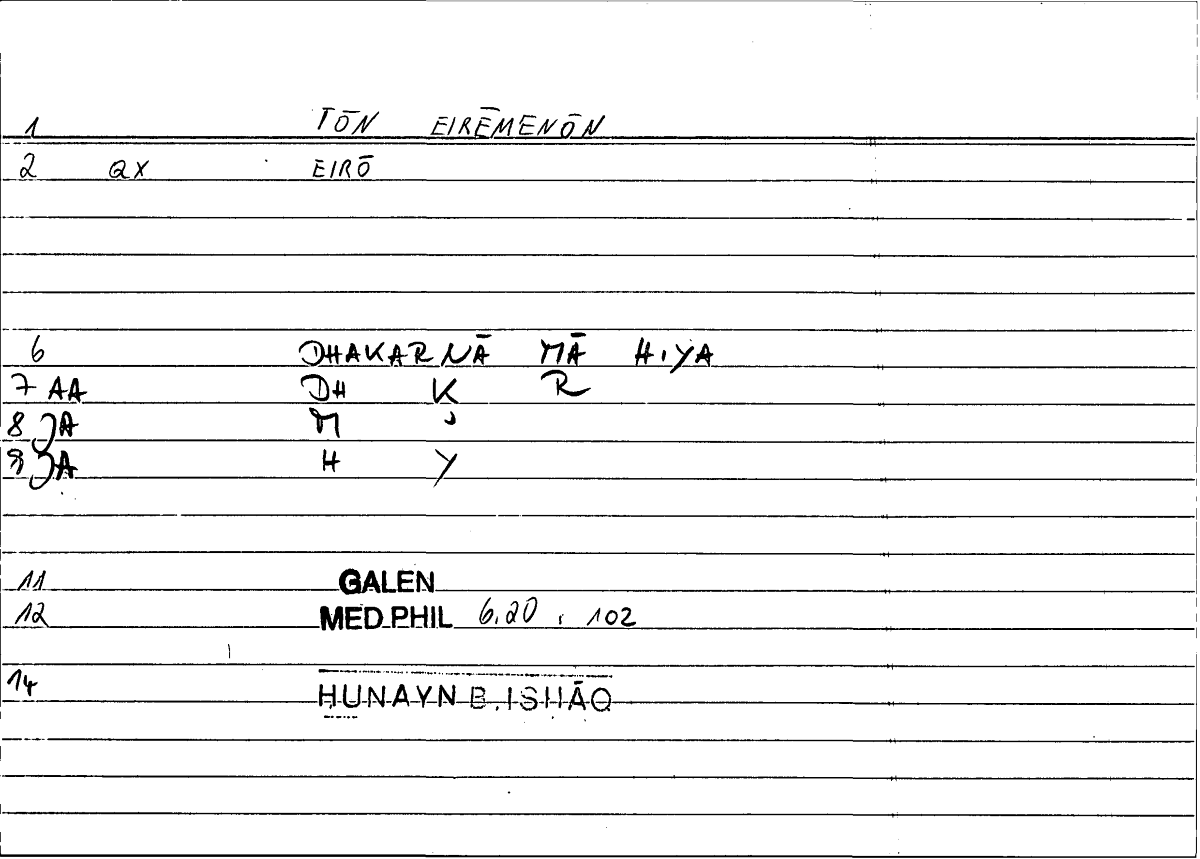 1 TŌN EIRĒMENŌN
2 QX EIRŌ
6 DHAKARNĀ MĀ HIYA
7 AA DH K R
8 JA M ʾ
9 JA H Y
11 GALEN
12 MED.PHIL 6.20 , 102
14 ḤUNAYN B. ISḤĀQ